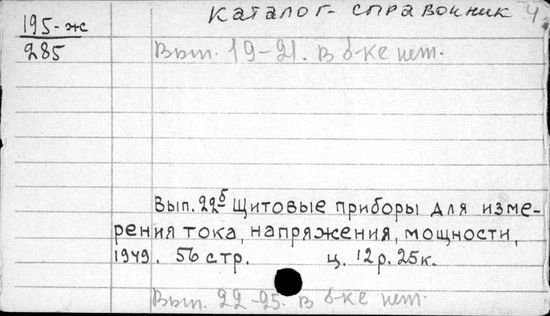 195-ж
285
каталог-справочник 4.
Вып. 19-21. в б-ке нет.
Вып. 22⁵ Щитовые приборы для изме-
рения тока, напряжения, мощности,
1949. 56 стр. ц. 12р. 25к.
Вып. 22-25. в б-ке нет.